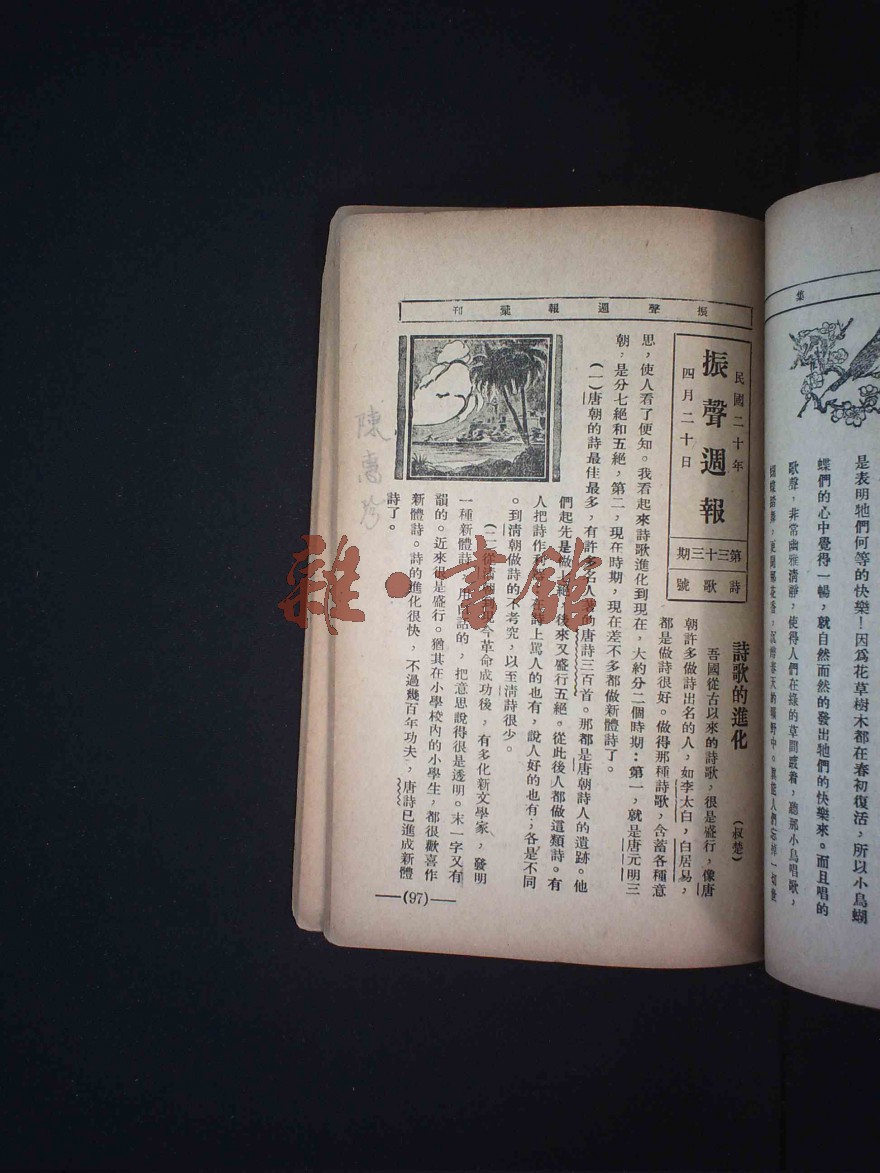 振聲週報彙刊
民國二十年
四月二十日
振聲週報
第三十三期
詩歌號
詩歌的進化
(叔楚)
吾國從古以來的詩歌，很是盛行，像唐
朝許多做詩出名的人，如李太白，白居易，
都是做詩很好。做得那種詩歌，含蓄各種意
思，使人看了便知。我看起來詩歌進化到現在，大約分二個時期：第一，就是唐元明三
朝，是分七絕和五絕，第二，現在時期，現在差不多都做新體詩了。
(一)唐朝的詩最佳最多，有許多名人的唐詩三百首。那都是唐朝詩人的遺跡。他
們起先是做七絕，後來又盛行五絕。從此後人都做這類詩。有
人把詩作利，在詩上罵人的也有，說人好的也有；各是不同
。到清朝做詩的不考究，以至清詩很少。
(二)從清朝到現今革命成功後，有多化新文學家，發明
一種新體詩，用白話的，把意思說得很是透明。末一字又有
韻的。近來很是盛行。猶其在小學校內的小學生，都很歡喜作
新體詩。詩的進化很快，不過幾百年功夫，唐詩已進成新體
詩了。
(97)
陳
雜·書館
集
是表明牠們何等的快樂！因爲花草樹木都在春初復活，所以小鳥蝴
蝶們的心中覺得一暢，就自然而然的發出牠們的快樂來。而且唱的
歌聲，非常幽雅清靜，使得人們在綠的草間踱着，聽那小鳥唱歌，